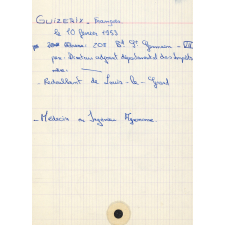 GUIZERIX - François
le 10 février 1953
adresse : 208 Bd St Germain - VII
père : Directeur adjoint départemental des Impôts
mère : ———
- Redoublant de Louis-le-Grand
- Médecin ou Ingénieur Agronome.